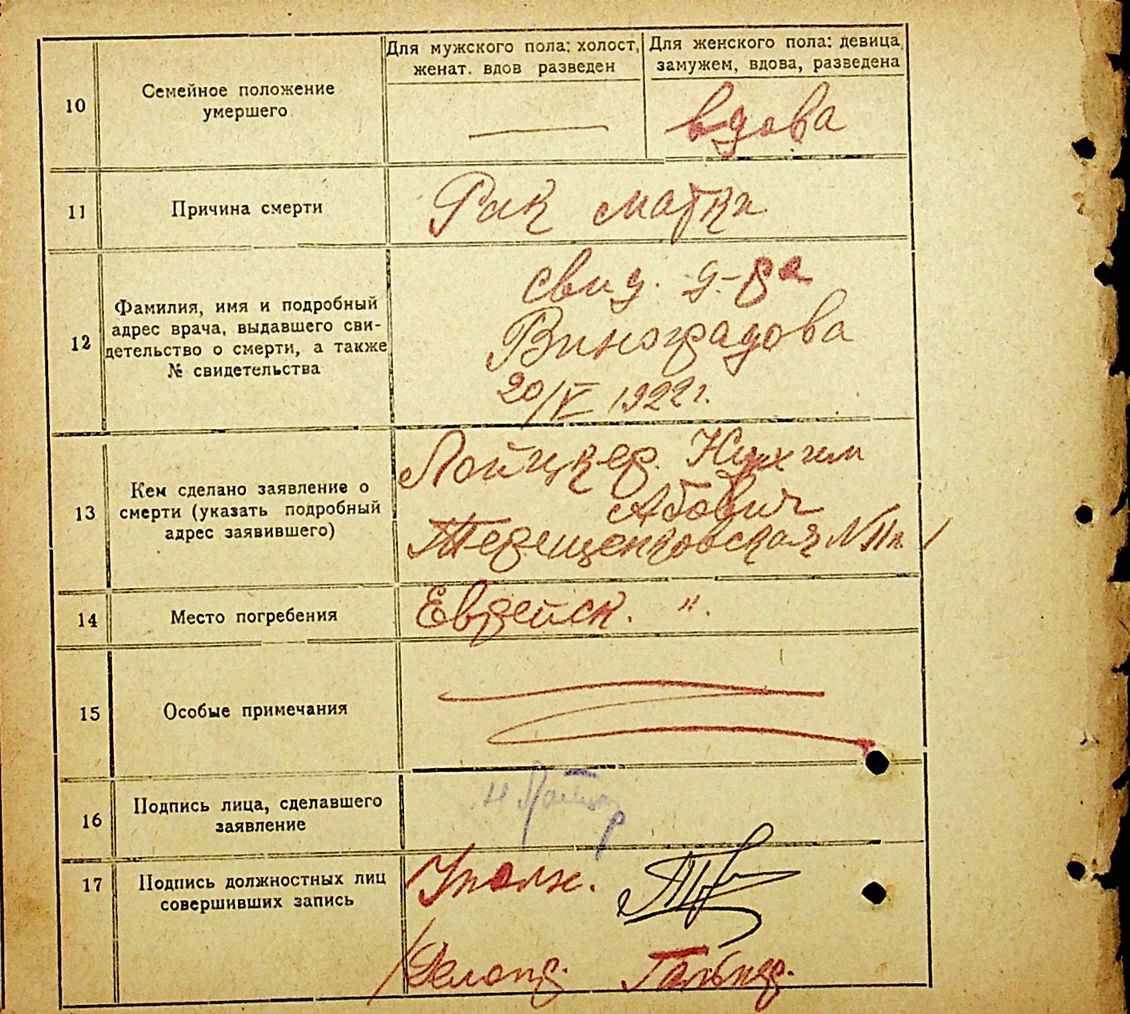 10
Семейное положение
умершего
Для мужского пола: холост,
женат. вдов разведен
Для женского пола: девица
замужем, вдова, разведена
вдова
11
Причина смерти
Рак матки
12
Фамилия, имя и подробный
адрес врача, выдавшего сви-
детельство о смерти, а также
№ свидетельства
свид. д-ра
Виноградова
20/V 1922 г.
13
Кем сделано заявление о
смерти (указать подробный
адрес заявившего)
Лойцкер Нухим
Абович
Терещенковская N 11
14
Место погребения
Еврейск. ".
15
Особые примечания
16
Подпись лица, сделавшего
заявление
17
Подпись должностных лиц
совершивших запись
Уполн.
Делопр.